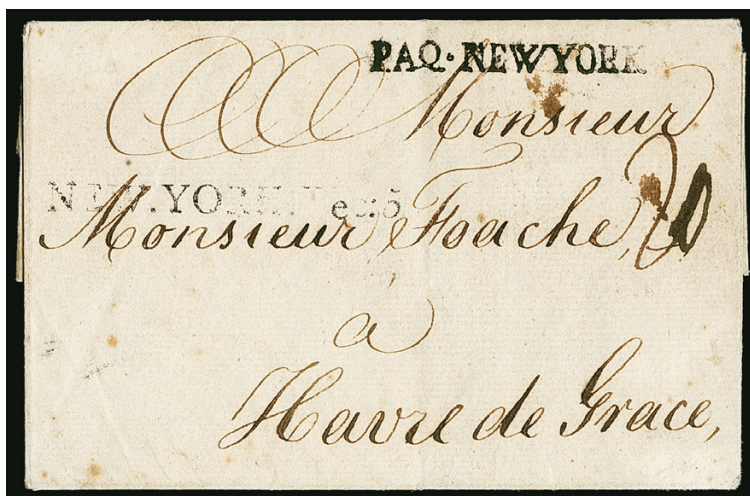 PAQ·NEWYORK
Monsieur
NEW.YORK.Dec:5
Monsieur Foache,
20
à
Havre de Grace,